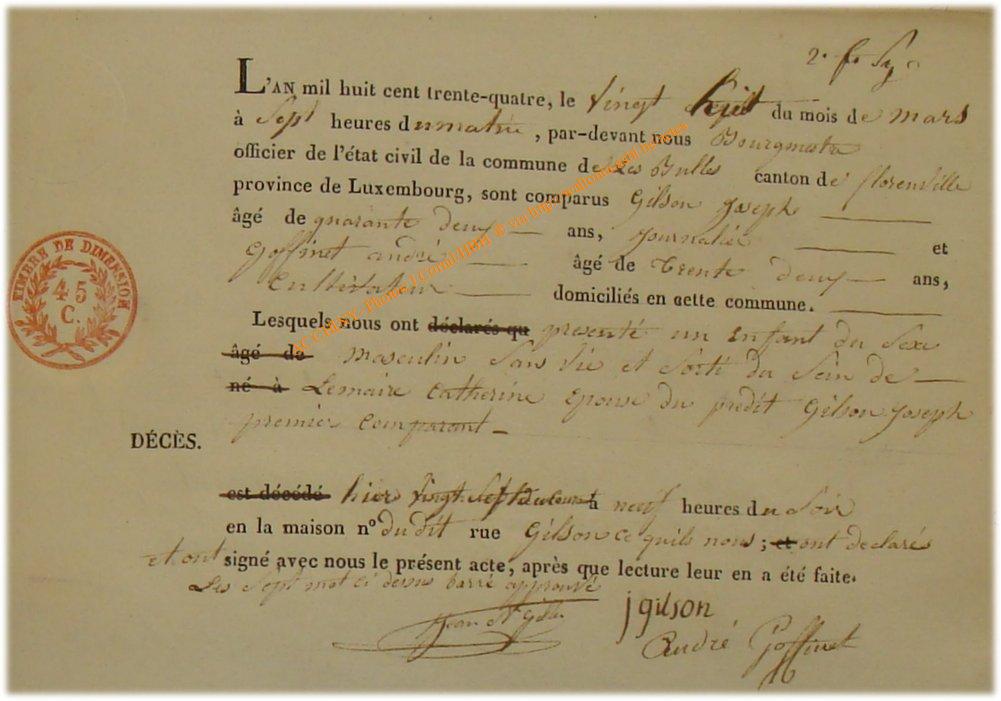 L'AN mil huit cent trente-quatre, le vingt huit du mois de mars
à Sept heures du matin, par-devant nous Bourgmestre
officier de l'état civil de la commune de Les Bulles canton de florenville
province de Luxembourg, sont comparus Gilson Joseph
âgé de quarante deux ans, Journalier et
Goffinet andré âgé de trente deux ans,
Cultivateur domiciliés en cette commune.
Lesquels nous ont déclarés qu présenté un Enfant du Sexe
âgé de masculin Sans Vie et Sorti du Sein de
né à Lemaire Catherine Epouse du predit Gilson Joseph
premier Comparant
DÉCÈS.
est décédé hier vingt Sept du courant à neuf heures du Soir
en la maison nº du dit rue Gilson ce quils nous; et ont declarés
et ont signé avec nous le présent acte, après que lecture leur en a été faite.
Les Sept mot ci dessus barré approuvé
jgilson
André Goffinet
TIMBRE DE DIMENSION
45
C.